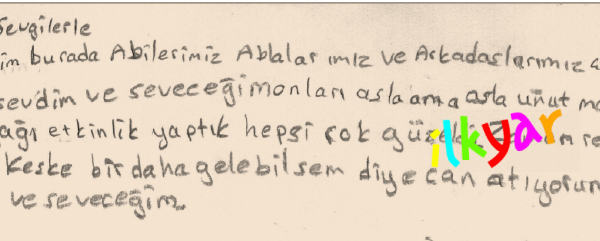 Sevgilerle
im burada Abilerimiz Ablalar ımız ve Arkadaslarımız
sevdim ve seveceğimonları asla ama asla unut
ağı etkinlik yaptık hepsi çok
ilkyar
Keske bir daha gelebilsem diye can atıyorum
ve seveceğim.